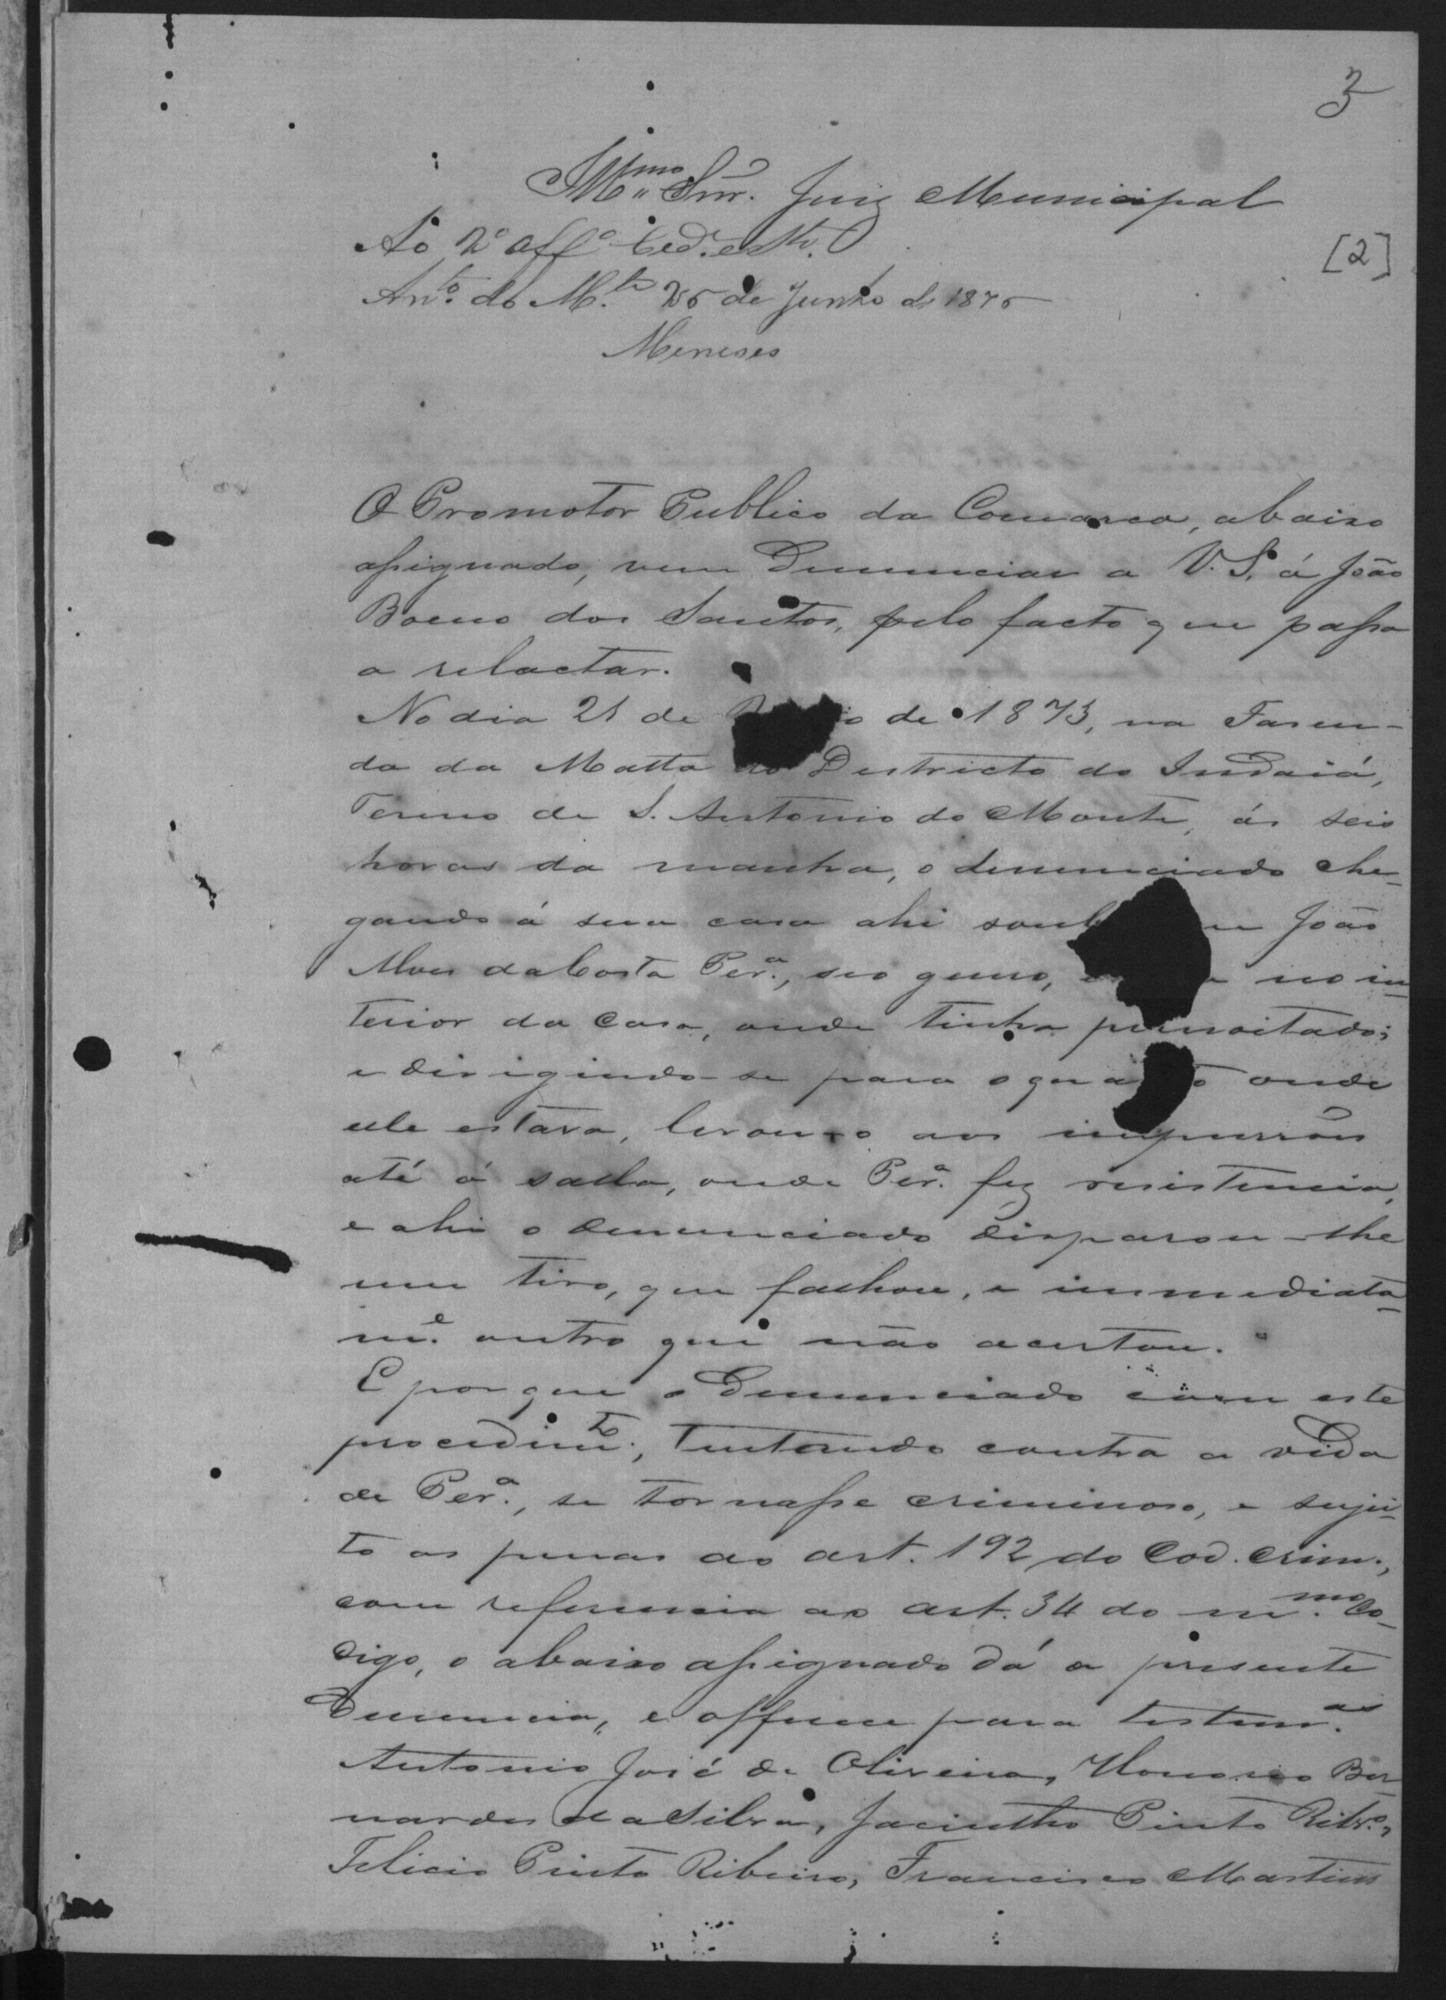 3
Illmo. Snr. Juiz Municipal
Ao 2º Offº
[2]
Antº. do Mte. 25 de Junho de 1875
Meneses
O Promotor Publico da Comarca, abaixo
assignado, vem Denunciar a V. S. á João
Boeno dos Santos, pelo facto que passa
a relactar.
No dia 21 de de 1873, na Fasen-
da da Matta do Destricto do Indaiá,
Termo de S. Antonio do Monte, ás seis
horas da manha, o denunciado che-
gando á sua casa ahi João
Alves da Costa Perª., seo genro, no in-
terior da casa, onde tinha pernoitado;
e dirigindo-se para o quarto onde
elle estava, levou-o aos impurrões
até á salla, onde Perª. fez resistencia,
e ahi o denunciado disparou-lhe
um tiro, que falhou, e immediata-
me. outro que não acertou.
E porque o Denunciado com este
procedimto., tentando contra a vida
de Perª., se tornasse criminoso, e sujei-
to as penas do art. 192 do Cod. crim.,
com referencia ao art. 34 do mmo. Co-
digo, o abaixo assignado dá a presente
Denuncia, e offerece para testemas.
Antonio José de Oliveira, Honorio Ber
nardes da Silva, Jacintho Pinto Ribrº.,
Felicio Pinto Ribeiro, Francisco Martins